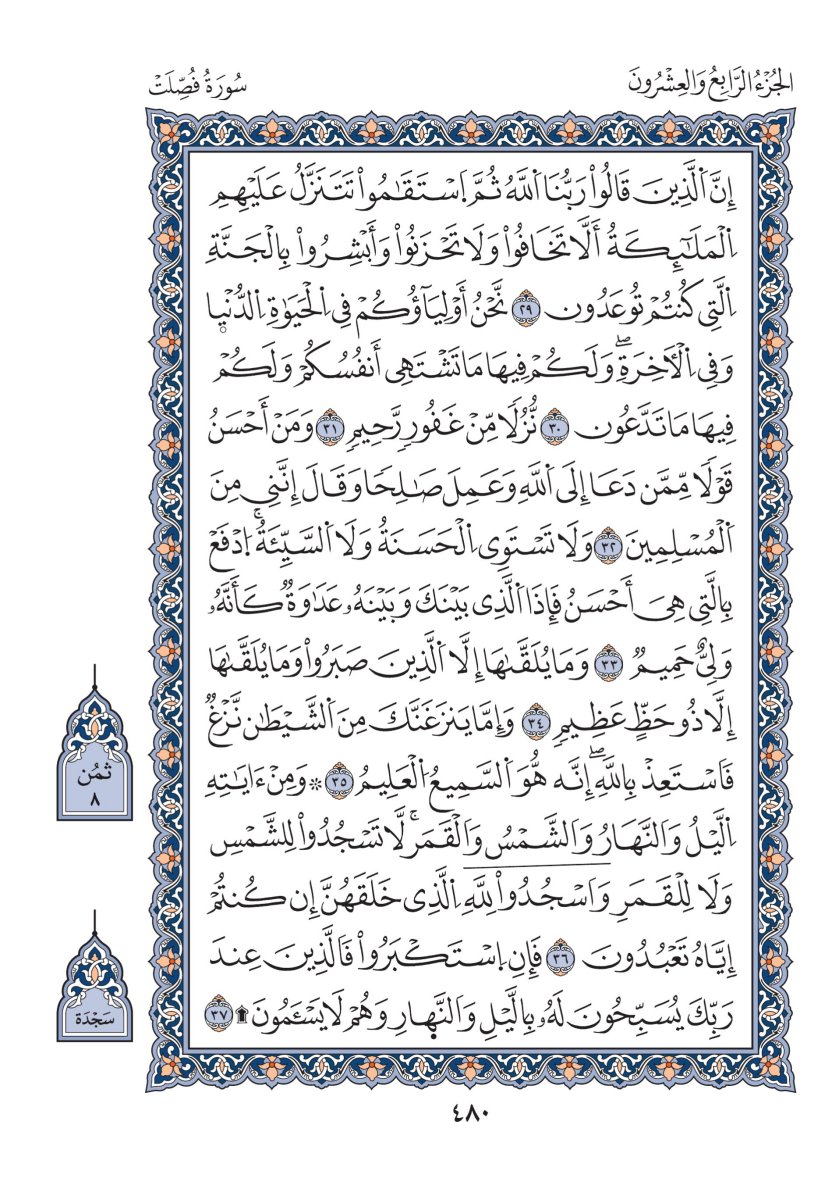 الجُزْءُ الرَّابِعُ وَالعِشْرُونَ
سُورَةُ فُصِّلَتْ
إِنَّ اَ۬لذِينَ قَالُواْ رَبُّنَا اَ۬للَّهُ ثُمَّ اَ۪سْتَقَٰمُواْ تَتَنَزَّلُ عَلَيْهِمِ
اِ۬لْمَلَٰٓئِكَةُ أَلَّا تَخَافُواْ وَلَا تَحْزَنُواْ وَأَبْشِرُواْ بِالْجَنَّةِ
اِ۬لتِي كُنتُمْ تُوعَدُونَ ٢٩ نَّحْنُ أَوْلِيَآؤُكُمْ فِي اِ۬لْحَيَوٰةِ اِ۬لدُّنْي۪ا
وَفِي اِ۬لْأٓخِرَةِۖ وَلَكُمْ فِيهَا مَا تَشْتَهِي أَنفُسُكُمْ وَلَكُمْ
فِيهَا مَا تَدَّعُونَ ٣٠ نُزُلٗا مِّنْ غَفُورٖ رَّحِيمٖ ٣١ وَمَنْ أَحْسَنُ
قَوْلٗا مِّمَّن دَعَا إِلَى اَ۬للَّهِ وَعَمِلَ صَٰلِحٗا وَقَالَ إِنَّنِي مِنَ
اَ۬لْمُسْلِمِينَ ٣٢ وَلَا تَسْتَوِي اِ۬لْحَسَنَةُ وَلَا اَ۬لسَّيِّئَةُۚ اُ۪دْفَعْ
بِالتِي هِيَ أَحْسَنُ فَإِذَا اَ۬لذِي بَيْنَكَ وَبَيْنَهُۥ عَدَٰوَةٞ كَأَنَّهُۥ
وَلِيٌّ حَمِيمٞ ٣٣ وَمَا يُلَقَّىٰهَا إِلَّا اَ۬لذِينَ صَبَرُواْ وَمَا يُلَقَّىٰهَا
إِلَّا ذُو حَظٍّ عَظِيمٖ ٣٤ وَإِمَّا يَنزَغَنَّكَ مِنَ اَ۬لشَّيْطَٰنِ نَزْغٞ
فَاسْتَعِذْ بِاللَّهِۖ إِنَّه هُّوَ اَ۬لسَّمِيعُ اُ۬لْعَلِيمُ ٣٥ ۞ وَمِنْ ءَايَٰتِهِ
اِ۬ليْلُ وَالنَّهَارُ وَالشَّمْسُ وَالْقَمَرُۚ لَا تَسْجُدُواْ لِلشَّمْسِ
وَلَا لِلْقَمَرِ وَاسْجُدُواْ لِلهِ اِ۬لذِي خَلَقَهُنَّ إِن كُنتُمْ
إِيَّاهُ تَعْبُدُونَ ٣٦ فَإِنِ اِ۪سْتَكْبَرُواْ فَالذِينَ عِندَ
رَبِّكَ يُسَبِّحُونَ لَهُۥ بِاليْلِ وَالنَّه۪ارِ وَهُمْ لَا يَسْـَٔمُونَ ۩ ٣٧
ثُمُن
٨
سَجْدَة
٤٨٠